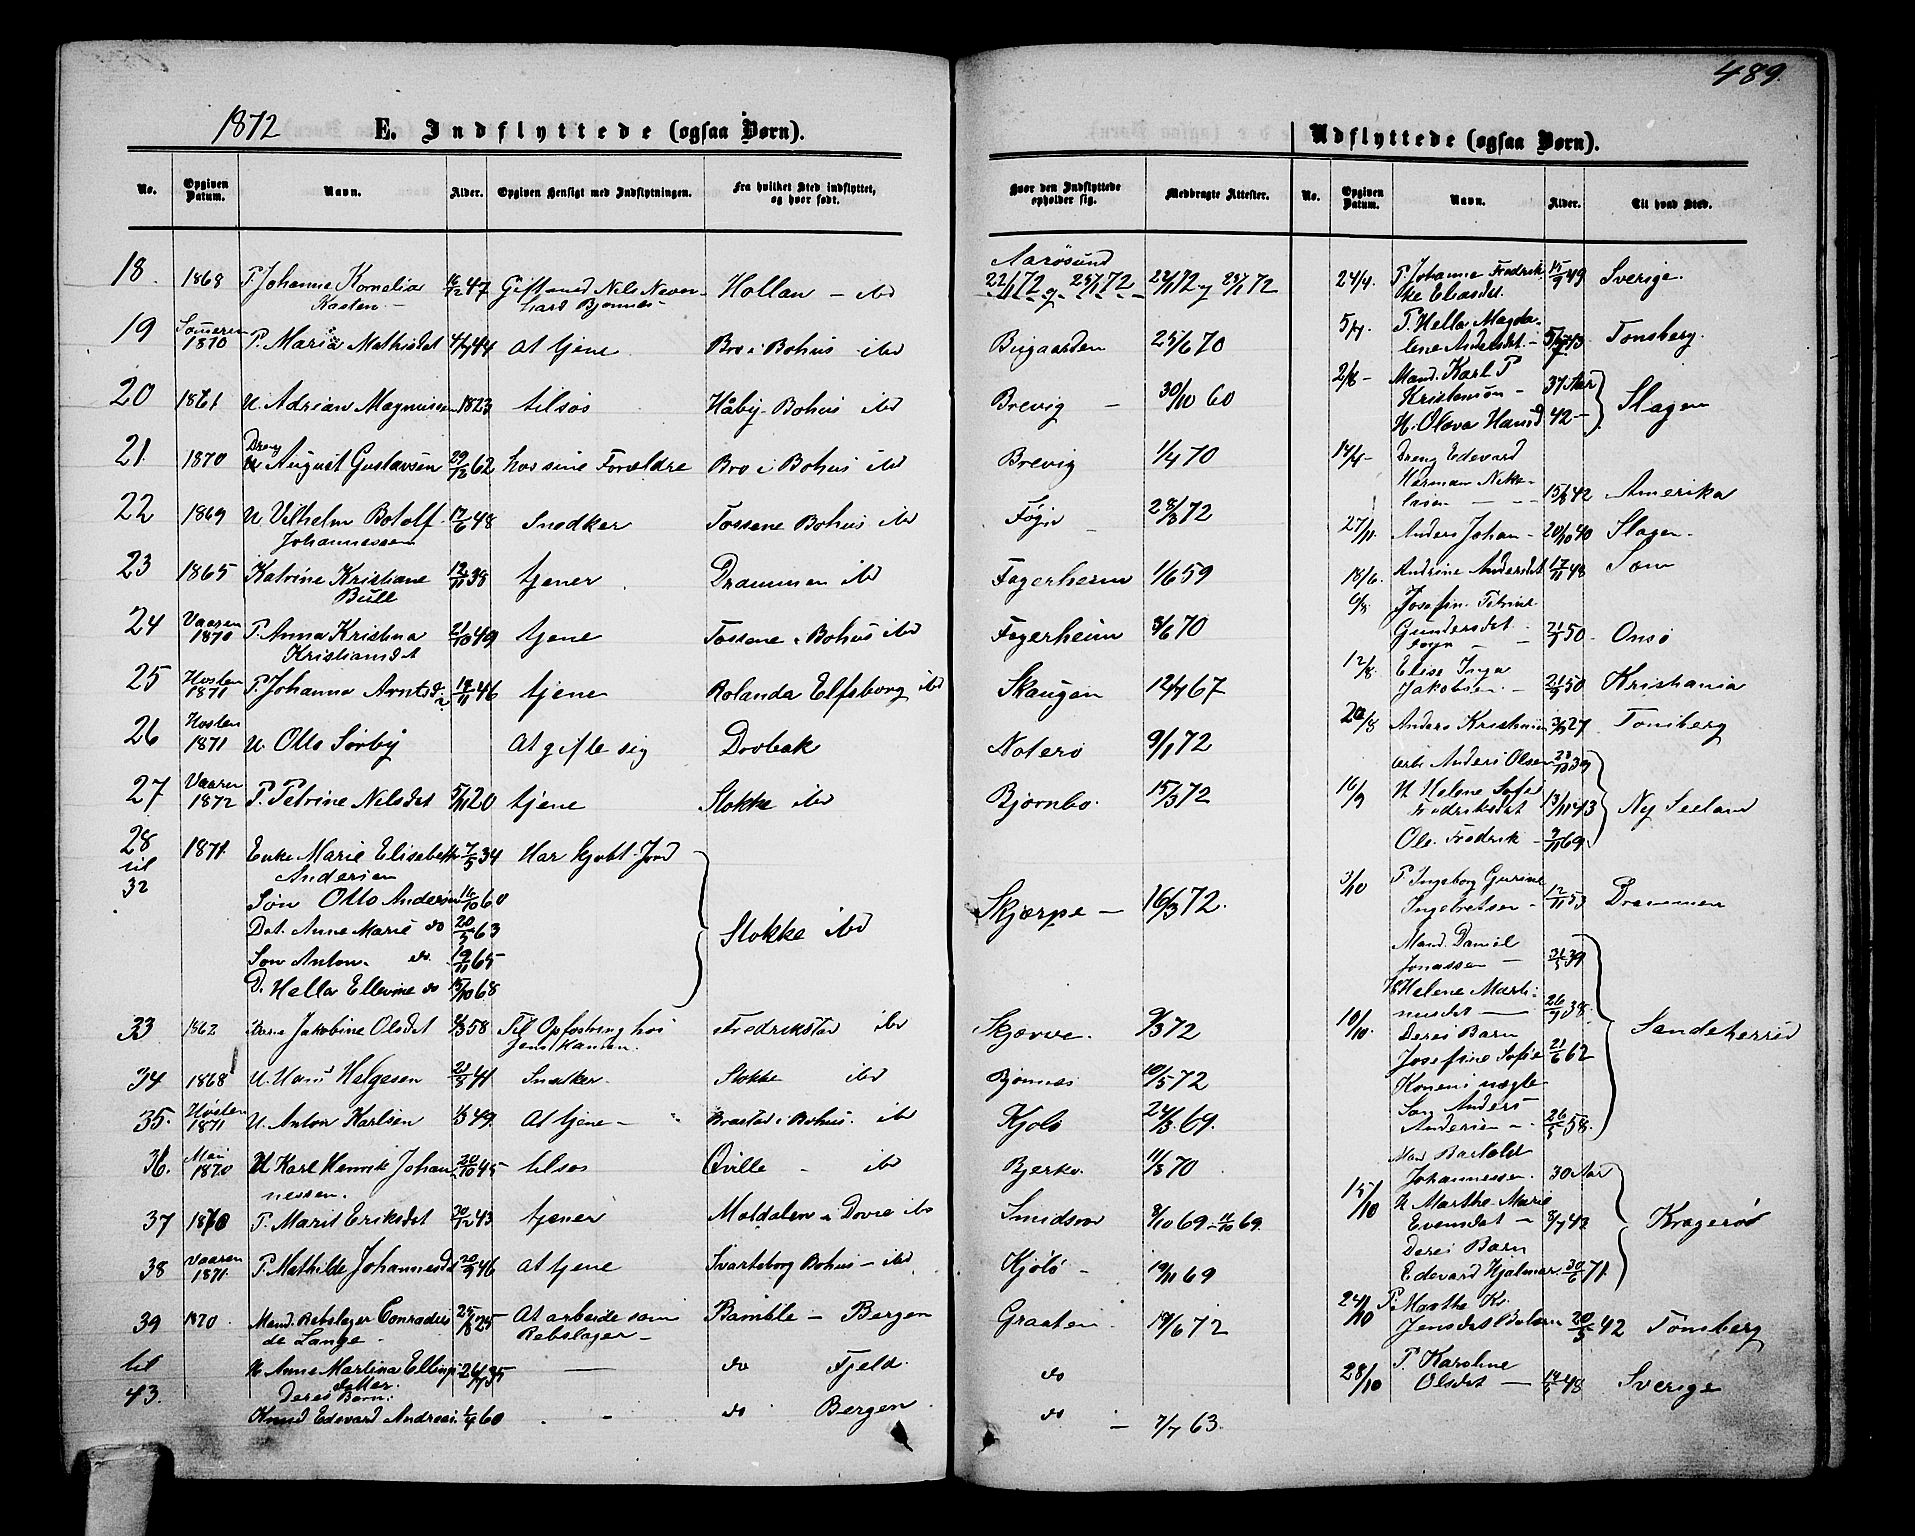 489.
1872 E. Indflyttede (ogsaa Børn).
No. Opgiven Datum. Navn. Alder. Opgiven Hensigt med Indflytningen. Fra hvilket Sted indflyttet, og hvor født.
Hvor den Indflyttede opholder sig. Medbragte Attester.
18 1868 P. Johanne Kornelia 47 Gift med Nils Never- Hollan – ibd Aarøsund
Kasten – hard Bjønnes 22/1 72 og 23/1 72
19 Someren 1870 P. Maria Mathisdat 44 At tjene Bro i Bohus ibd Bugaarden 25/6 70
20 1861 U. Adrian Magnusen 1823 tilsøs Håby Bohus ibd Brevig – 30/10 60
21. 1870 Dreng August Gustavsen 62 hos sine Forældre Bro i Bohus ibd Brevig 1/4 70
22 1869 U Vilhelm Botolf 17/6 48 Snedker Tossene Bohus ibd Føjn – 28/3 72
Johannessen
23 1865 Katrine Kristiane 38 tjener Drammen ibd Fagerheim 1/6 59
Bull
24 Vaaren 1870 P. Anna Kristina 21/10 49 tjene Tossene i Bohus ibd Fagerheim 3/6 70
Kristiansdat
25 Høsten 1871 P. Johanna Arntsd. 46 tjene Rolanda Elfsborg ibd Skaugen 12/4 67
26 Høsten 1871 U Otto Sørby At gifte sig Drøbak Noterø 9/1 72
27 Vaaren 1872 P. Petrine Nilsdat 5/11 20 tjene Stokke ibd Bjørnebo 15/3 72
28 til 32 1871 Enke Marie Elisabeth 7/5 34 Har kjøbt Jord Stokke ibd Skjærpe – 16/3 72.
Andersen
Søn Otto Andersen 16/10 60
Dat. Anne Marie do 20/5 63
Søn Anton do 19/11 65
D. Hella Ellevine do 15/10 68
33 1862 Jakobine Olsdat 58 Til Opfostring hos Fredrikstad ibd Skjærve. 9/3 72
Jens Hansen.
34 1868 U. Hans Helgesen 41 Snedker Stokke ibd Bjønnes 10/5 72
35. Høsten 1871 U. Anton Karlsen 49 At tjene – Brastad i Bohus ibd Kjøls 24/3 69.
36. Mai 1870 U Karl Henrik Johan 20/10 45 tilsøs Qville – ibd Bjerke 11/3 70
nessen.
37 1870 P. Marit Eriksdat 20/12 43 tjener Moldalen i Dovre ibd 8/10 69 – 11/10 69
38 Vaaren 1871. P. Mathilde Johannesdt 20/9 46 At tjene Svarteborg Bohus – ibd Kjølø – 19/11 69
39 1870 Mand. Rebslager Conradus 25/8 25 At arbeide som Bamble – Bergen Graaten 19/6 72
de Lange – Rebslager –
til H. Anne Martina Ellings 26/7 35 – do Fjeld do
43. datter.
Deres Barn:
Knud Edevard Andreas. 1/4 60 – do Bergen do – 7/7 63.
Udflyttede (ogsaa Børn).
No. Opgiven Datum. Navn. Alder. Til hvad Sted.
24/4 P. Johanne Fredrik 15/9 49 Sverige.
ke Eliasdat.
5/4. P. Hella Magda-
lene Andersdat – 43 Tønsberg.
2/8 – Mand. Karl P 37 Aar
Kristensøn – Slagen
H. Olava Hansd 42 –
14/4 – Dreng Edevard
Herman Nikko-
laisen 42 Amerika
27/11 Anders Johan – 20/10 40 Slagen
18/6. Andrine Andersdat 17/11 48 Søm
6/8. Josefin. Petrine
Gundersdat 50 Onsø
Føyn –
12/8. Elise Inga
Jakobsen – 50 Kristiania
20/8 Anders Kristensen 27 Tønsberg
Anders Olsen 39
16/9 H Helene Sofie 13/11 43 Ny Seeland
Fredriksdat
Ole Fredrik – 69.
3/10 P Ingeborg Gurine
Ingebretsen – 12/11 53 Drammen
Mand. Daniel
Jonassen – 39
H Helene Marti-
nusdat – 26/9 38.
10/10 Deres Barn Sandeherred
Josefine Sofie 21/6 62
Konens uægte
Søn Anders
Andersen – 26/5 58
Mand Bartold
Johannessen 30 Aar
15/10 H Marthe Marie
Evensdat – 8/7 42 Kragerø
Deres Barn
Edevard Hjalmar 20/6 71.
24/10 P. Marthe K.
Jensdat Bolærn 20/5 42 Tønsberg
28/10 P. Karoline
Olsdat – 48 Sverige